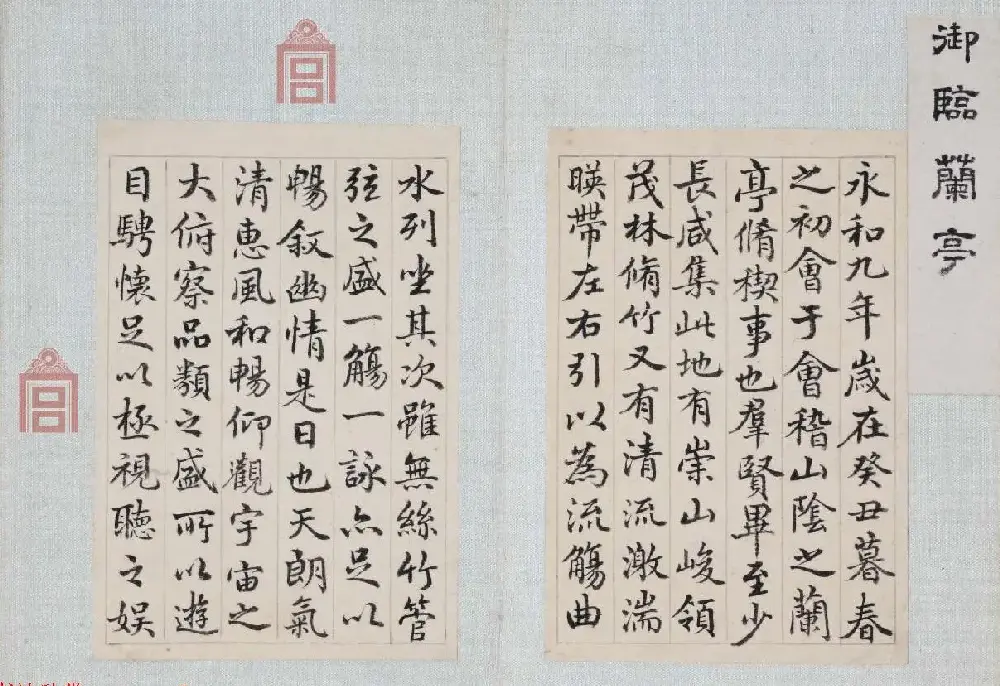 御臨蘭亭
永和九年歲在癸丑暮春
之初會于會稽山陰之蘭
亭脩稧事也羣賢畢至少
長咸集此地有崇山峻領
茂林脩竹又有清流激湍
暎帶左右引以為流觴曲
水列坐其次雖無絲竹管
弦之盛一觴一詠亦足以
暢叙幽情是日也天朗氣
清惠風和暢仰觀宇宙之
大俯察品類之盛所以遊
目騁懷足以極視聽之娛